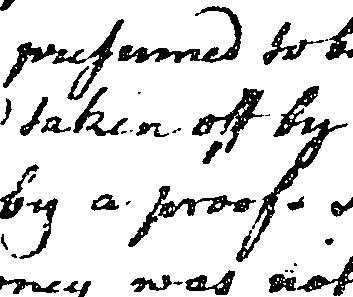 presumed to b
taken off by
by a proof. s
oney was not